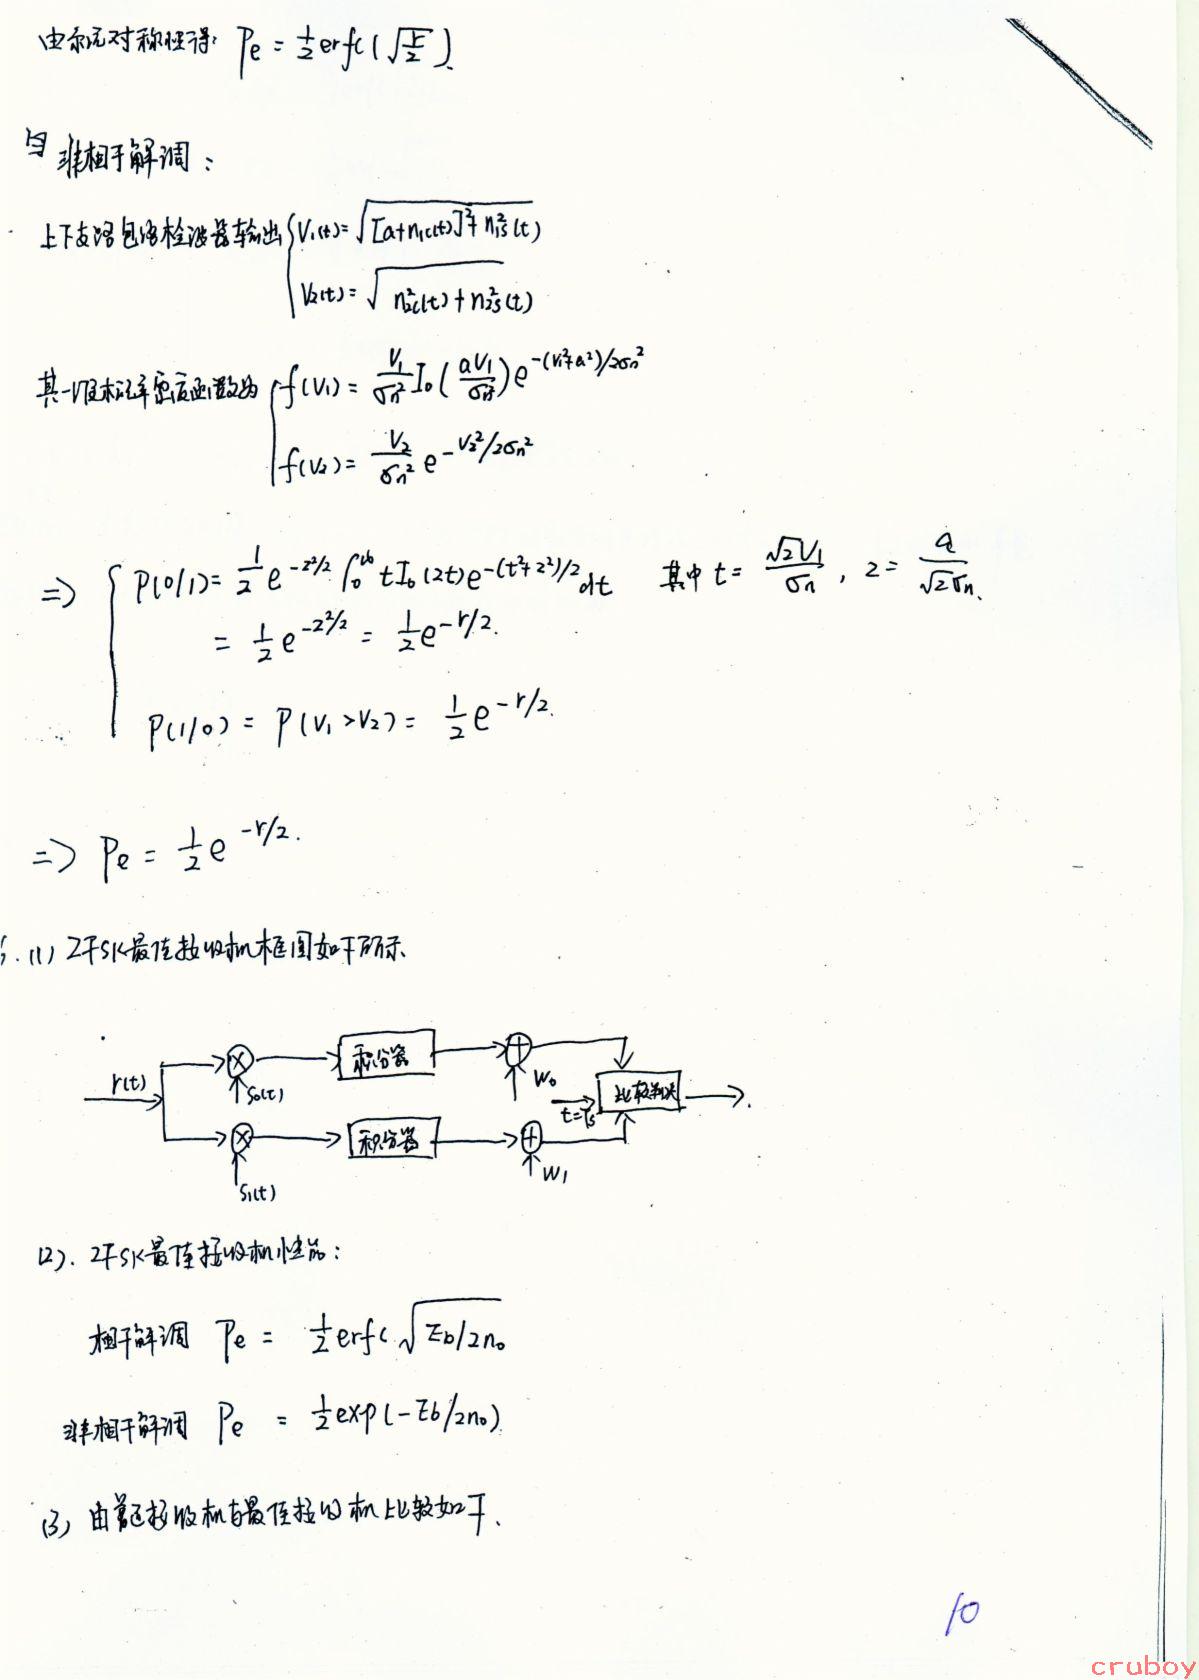 由系统对称性得: Pe = 1/2 erfc(√(r/2)).
非相干解调:
上下支路包络检波器输出 { V1(t) = √([a+n1c(t)]²+n1s²(t))
V2(t) = √(n2c²(t)+n2s²(t))
其一维概率密度函数为 { f(V1) = V1/σn² I0(aV1/σn²) e^-(V1²+a²)/2σn²
f(V2) = V2/σn² e^-V2²/2σn²
=> { P(0/1) = 1/2 e^-z²/2 ∫0^∞ tI0(zt)e^-(t²+z²)/2 dt 其中 t = √2V1/σn, z = a/√2σn.
= 1/2 e^-z²/2 = 1/2 e^-r/2.
P(1/0) = P(V1>V2) = 1/2 e^-r/2.
=> Pe = 1/2 e^-r/2.
(1) 2FSK最佳接收机框图如下所示.
r(t) × S0(t) 积分器 + W0 t=Ts 比较判决
× S1(t) 积分器 + W1
(2). 2FSK最佳接收机性能:
相干解调 Pe = 1/2 erfc √(Eb/2n0)
非相干解调 Pe = 1/2 exp(-Eb/2n0)
(3) 由普通接收机与最佳接收机比较如下.
10
cruboy